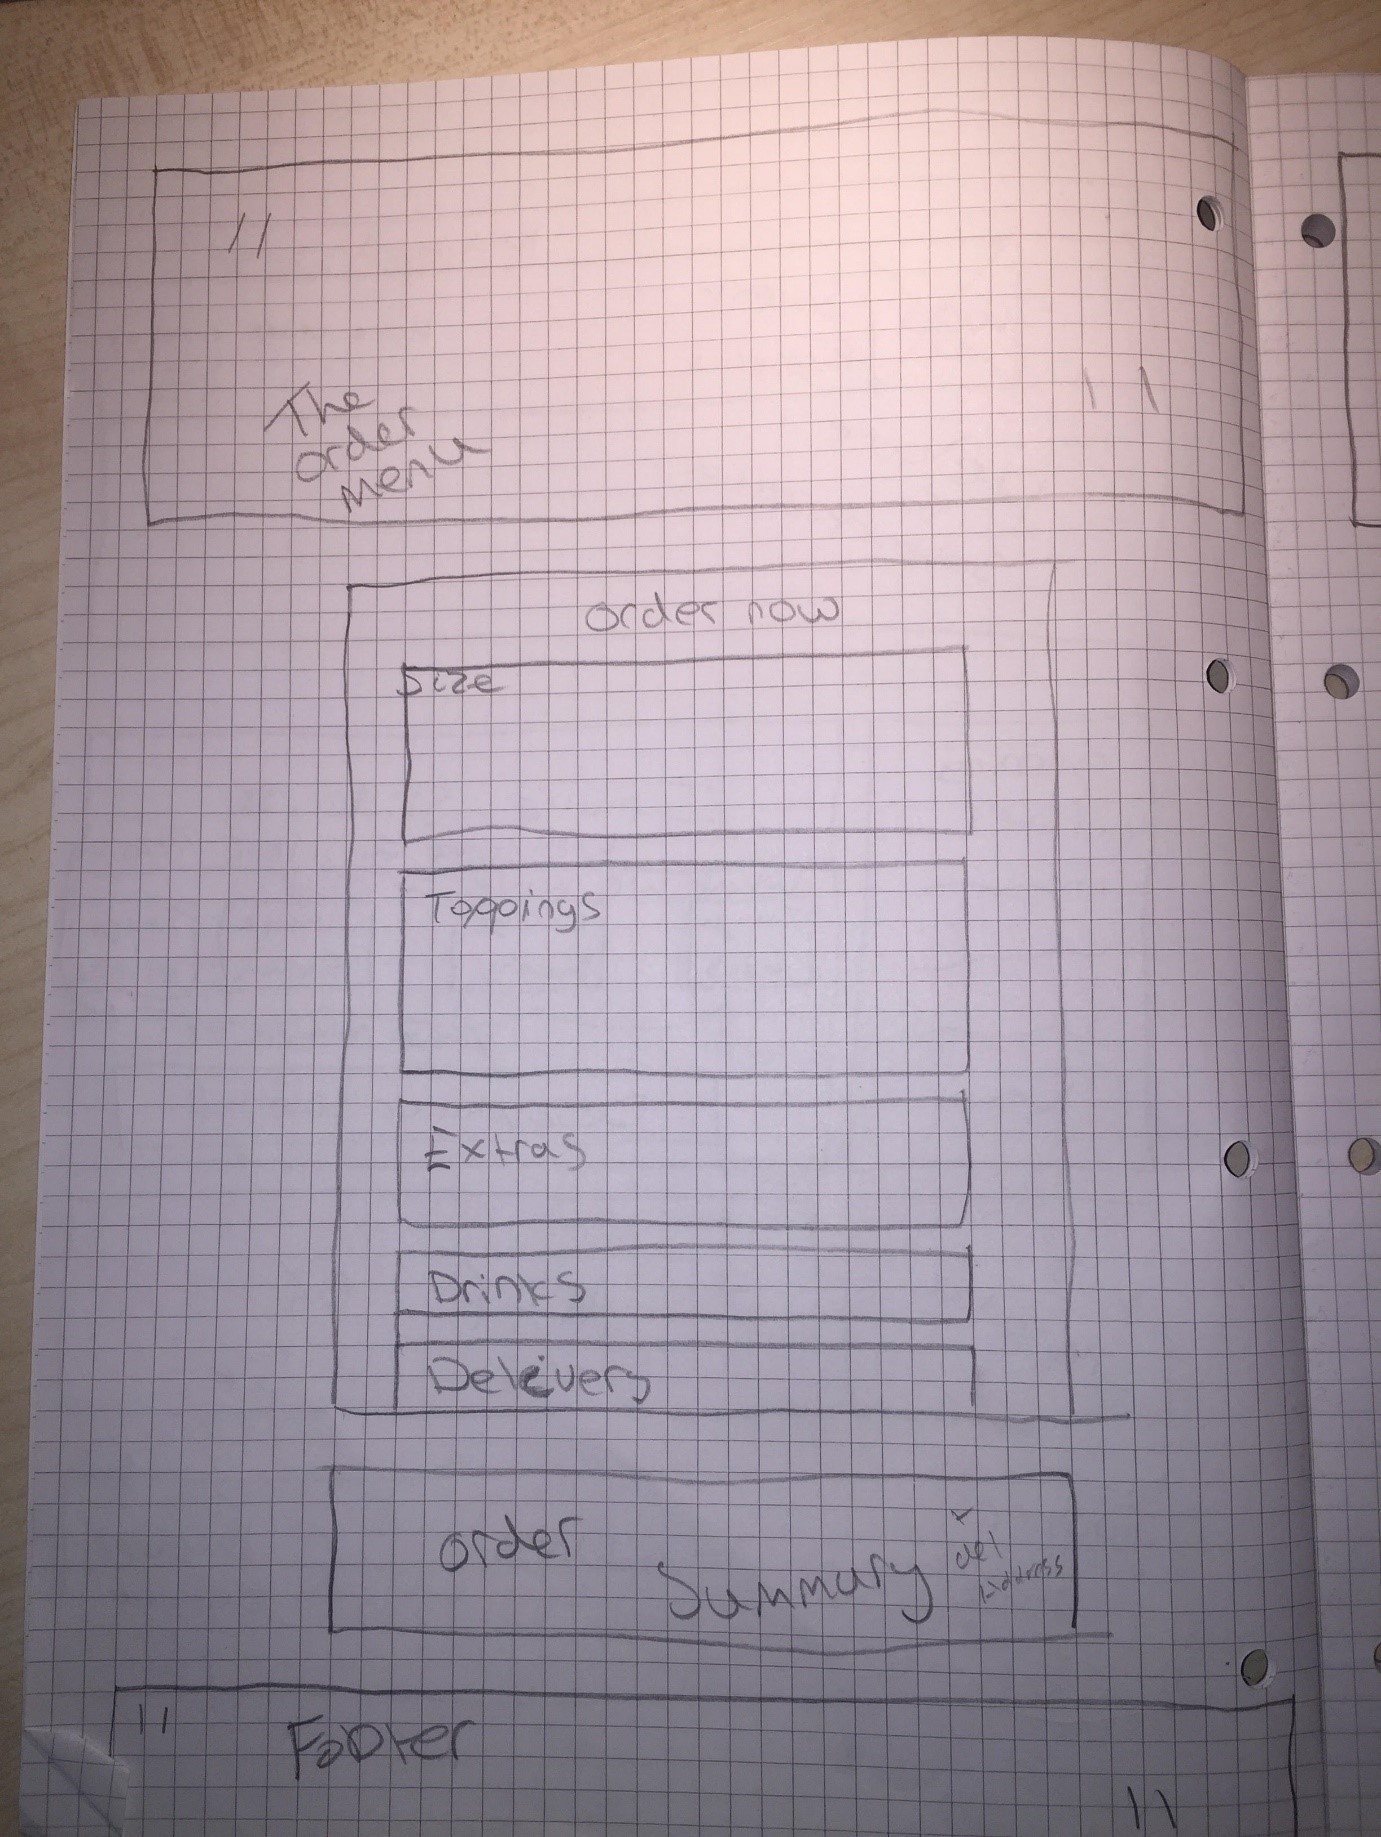 The
order
menu
order now
Size
Toppings
Extras
Drinks
Delivery
order Summary
del
Address
Footer